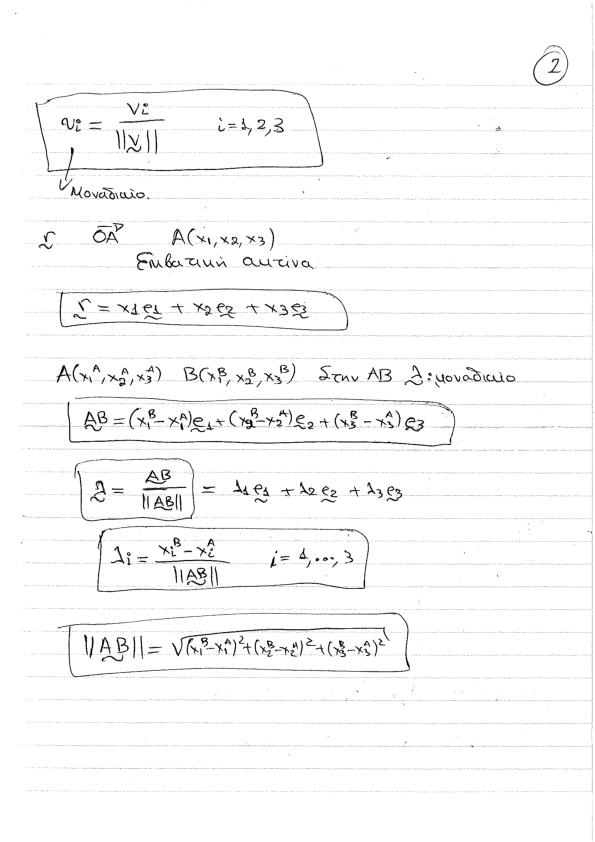 2
vi = Vi / ||V|| i=1,2,3
Μοναδιαίο.
r OA A(x1, x2, x3)
Επιβατική ακτίνα
r = x1e1 + x2e2 + x3e3
A(x1^A, x2^A, x3^A) B(x1^B, x2^B, x3^B) Στην AB λ: μοναδιαίο
AB = (x1^B - x1^A)e1 + (x2^B - x2^A)e2 + (x3^B - x3^A)e3
λ = AB / ||AB|| = λ1e1 + λ2e2 + λ3e3
λi = xi^B - xi^A / ||AB|| i = 1, ..., 3
||AB|| = √(x1^B - x1^A)^2 + (x2^B - x2^A)^2 + (x3^B - x3^A)^2